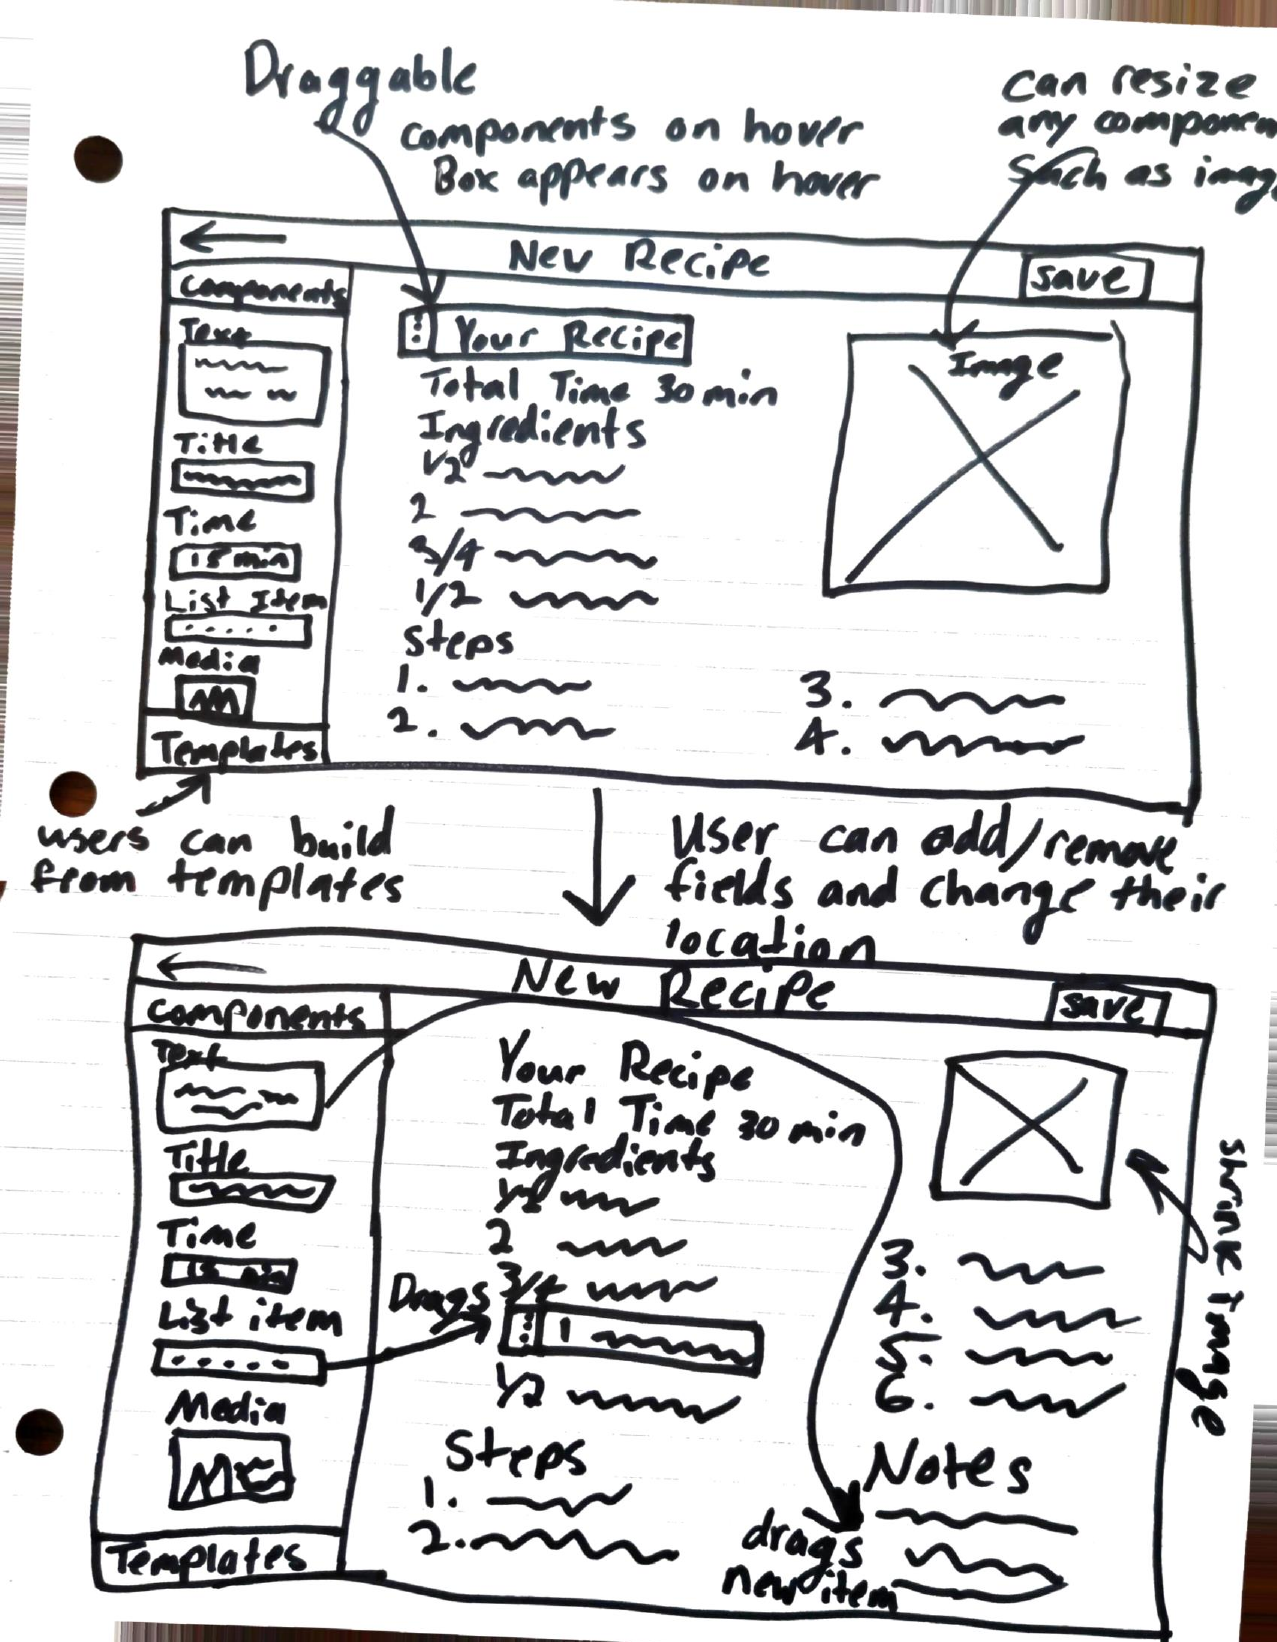 Draggable
components on hover
Box appears on hover
can resize
any componen
Such as imag
New Recipe
save
Components
Text
Title
Time
15 min
List Item
Media
Templates
Your Recipe
Total Time 30 min
Ingredients
1/2
2
3/4
1/2
Steps
1.
2.
Image
3.
4.
users can build
from templates
User can add/remove
fields and change their
location
New Recipe
save
Components
Text
Title
Time
15 min
List item
Media
Templates
Your Recipe
Total Time 30 min
Ingredients
1/2
2
3/4
Drags
1
1/2
Steps
1.
2.
shrink Image
3.
4.
5.
6.
Notes
drags
new item